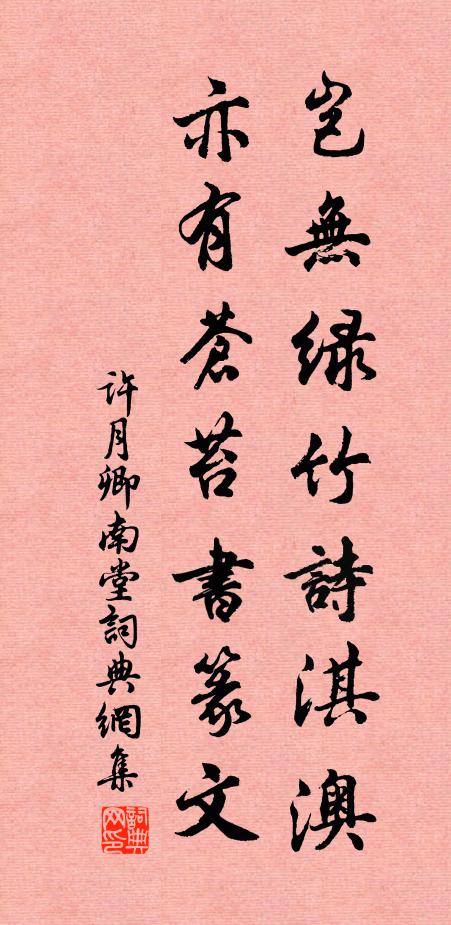 豈無緑竹詩淇澳
亦有蒼苔書篆文
許月卿南堂詞典網集
詞典网印